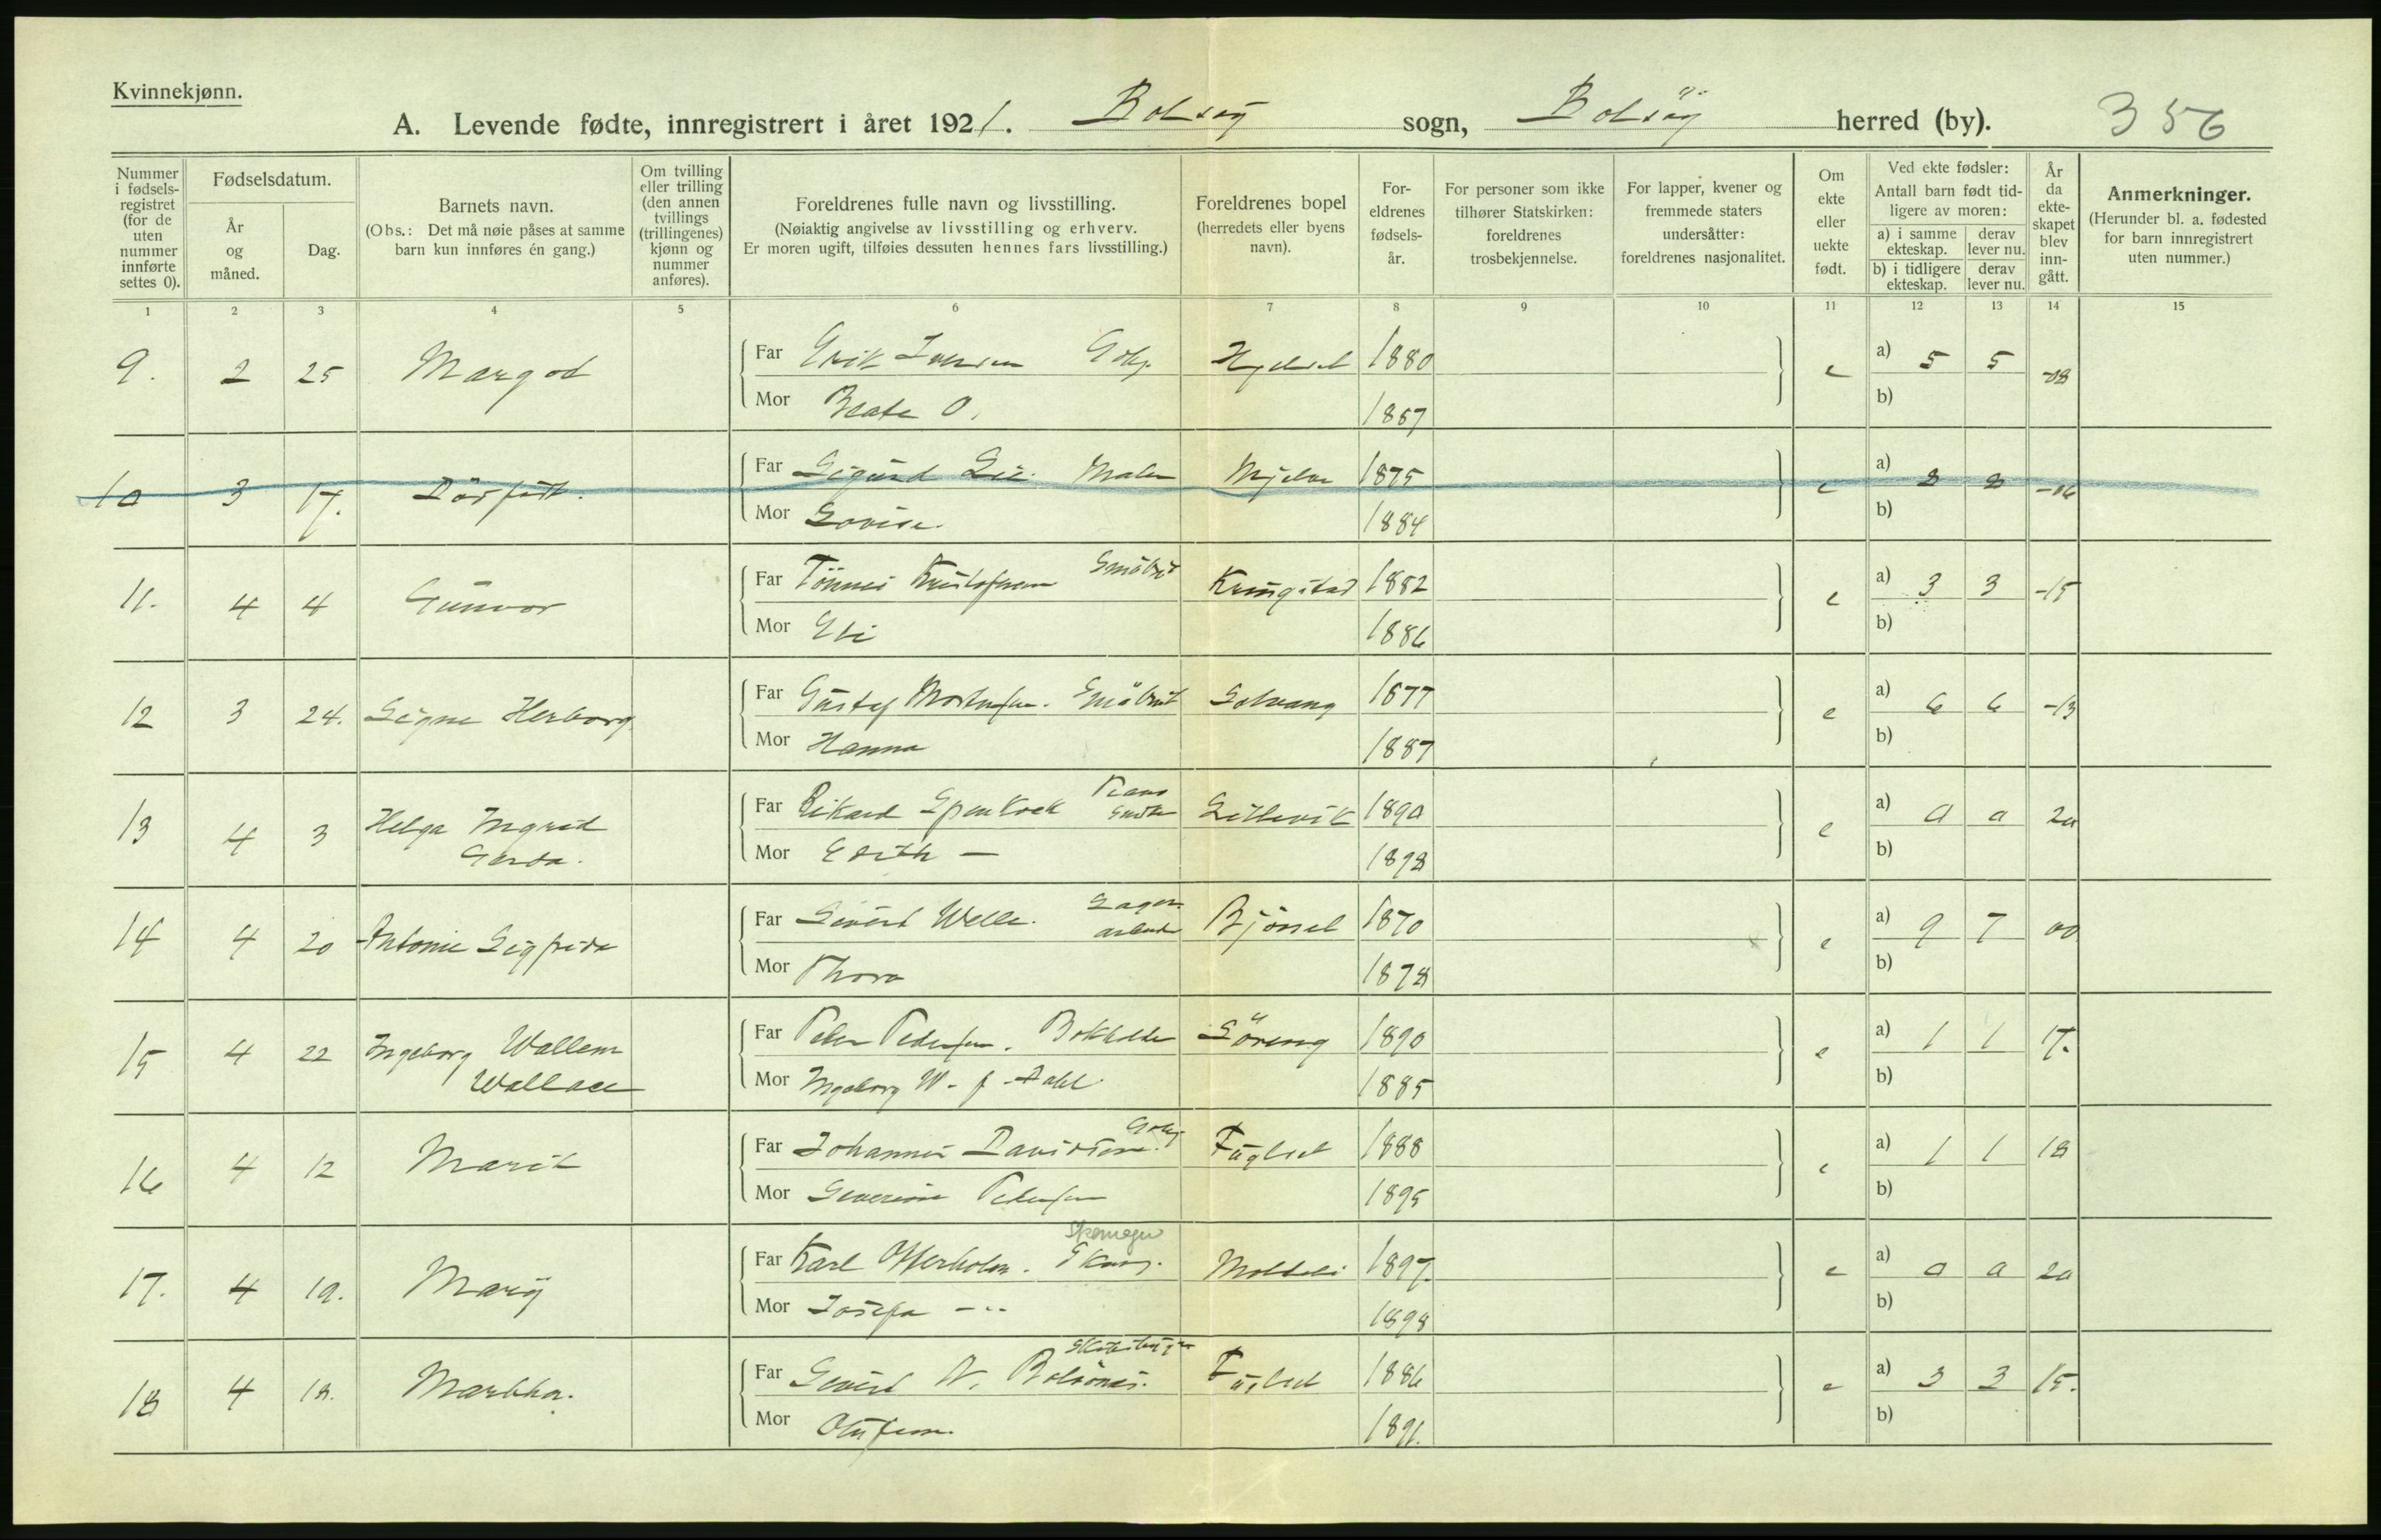 Kvinnekjønn.
A. Levende fødte, innregistrert i året 1921. Bolsøy sogn, Bolsøy herred (by). 356
Nummer i fødsels-registret (for de uten nummer innførte settes 0).
Fødselsdatum.
År og måned.
Dag.
Barnets navn.
(Obs.: Det må nøie påses at samme barn kun innføres én gang.)
Om tvilling eller trilling (den annen tvillings (trillingenes) kjønn og nummer anføres).
Foreldrenes fulle navn og livsstilling.
(Nøiaktig angivelse av livsstilling og erhverv.
Er moren ugift, tilføies dessuten hennes fars livsstilling.)
Foreldrenes bopel (herredets eller byens navn).
For-eldrenes fødsels-år.
For personer som ikke tilhører Statskirken: foreldrenes trosbekjennelse.
For lapper, kvener og fremmede staters undersåtter: foreldrenes nasjonalitet.
Om ekte eller uekte født.
Ved ekte fødsler:
Antall barn født tid-ligere av moren:
a) i samme ekteskap.
derav lever nu.
b) i tidligere ekteskap.
derav lever nu.
År da ekte-skapet blev inn-gått.
Anmerkninger.
(Herunder bl. a. fødested for barn innregistrert uten nummer.)
1 2 3 4 5 6 7 8 9 10 11 12 13 14 15
9. 2 25 Margod Far Erik Iversen Gbr. Hjelset 1880 e a) 5 5 -08
Mor Beate O. 1887 b)
10 3 17. Dødfødt. Far Sigurd Lie. Maler Mjelve 1875 e a) 8 8 -06
Mor Lovise. 1884 b)
11. 4 4 Gunvor Far Tönnes Kristofersen Småbr Kringstad 1882 e a) 3 3 -15
Mor Eli 1886 b)
12 3 24. Signe Herborg Far Gustaf Mortensen. Småbruk Solvang 1877 e a) 6 6 -13
Mor Hanna 1887 b)
13 4 3 Helga Ingrid Gerda. Far Rikard Lillevik 1890 e a) 0 0 20
Mor Edith — 1898 b)
14 4 20 Antonie Sigfrida Far Sivert Welle. Lager arbeider Bjørset 1870 e a) 9 7 00
Mor Thora 1878 b)
15 4 22 Ingeborg Wallem Wallace Far Peder Pedersen. Bokholder Söreng 1890 e a) 1 1 17.
Mor Ingeborg W. f. Dahl. 1885 b)
16 4 12 Marit Far Johannes Davidsen. Gbr Fuglset 1888 e a) 1 1 18
Mor Severine Pedersen 1895 b)
17. 4 19. Mary Far Karl Skomager Moldeli 1897. e a) 0 0 20
Mor Josefa -"- 1898 b)
18 4 18. Martha. Far Sivert N. Bolsönes. Fuglset 1886 e a) 3 3 15.
Mor 1891. b)